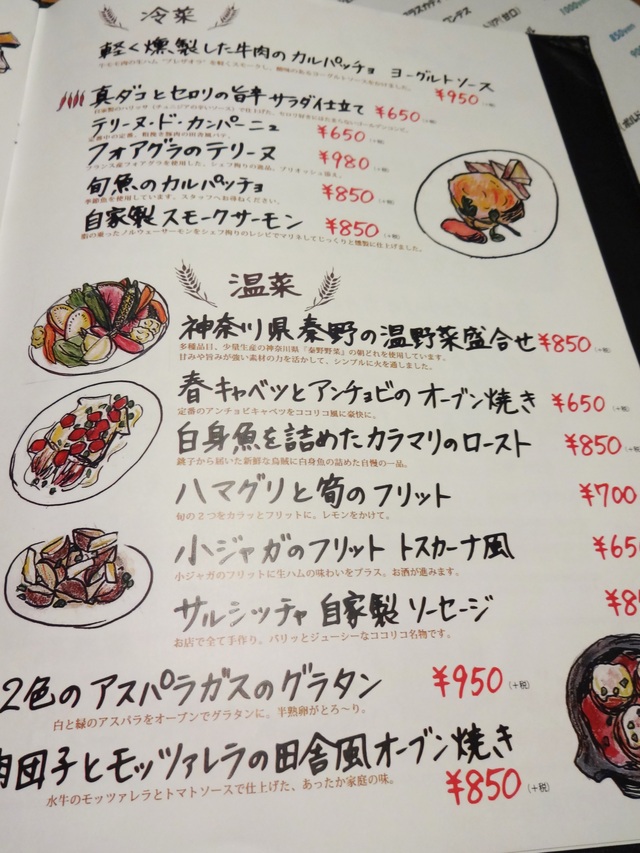 冷菜
軽く燻製した牛肉のカルパッチョ ヨーグルトソース
¥950
真ダコとセロリの旨辛サラダ仕立て ¥650
テリーヌ・ド・カンパーニュ ¥650
定番中の定番、粗挽き豚肉の田舎風パテ。
フォアグラのテリーヌ ¥980
フランス産フォアグラを使用した、シェフ拘りの逸品。ブリオッシュ添え。
旬魚のカルパッチョ ¥850
季節魚を使用しています。スタッフへお尋ねください。
自家製スモークサーモン ¥850
脂の乗ったノルウェーサーモンをシェフ拘りのレシピでマリネしてじっくりと燻製に仕上げました。
温菜
神奈川県秦野の温野菜盛合せ ¥850
多種品目、少量生産の神奈川県「秦野野菜」の朝どれを使用しています。
甘みや旨みが強い素材の力を活かして、シンプルに火を通しました。
春キャベツとアンチョビのオーブン焼き ¥650
定番のアンチョビキャベツをココリコ風に豪快に。
白身魚を詰めたカラマリのロースト ¥850
銚子から届いた新鮮な烏賊に白身魚の詰めた自慢の一品。
ハマグリと筍のフリット ¥700
旬の2つをカラッとフリットに。レモンをかけて。
小ジャガのフリット トスカーナ風 ¥65
小ジャガのフリットに生ハムの味わいをプラス。お酒が進みます。
サルシッチャ 自家製ソーセージ ¥8
お店で全て手作り。パリッとジューシーなココリコ名物です。
2色のアスパラガスのグラタン ¥950 (+税)
白と緑のアスパラをオーブンでグラタンに。半熟卵がとろ〜り。
肉団子とモッツァレラの田舎風オーブン焼き
¥850 (+税)
水牛のモッツァレラとトマトソースで仕上げた、あったか家庭の味。